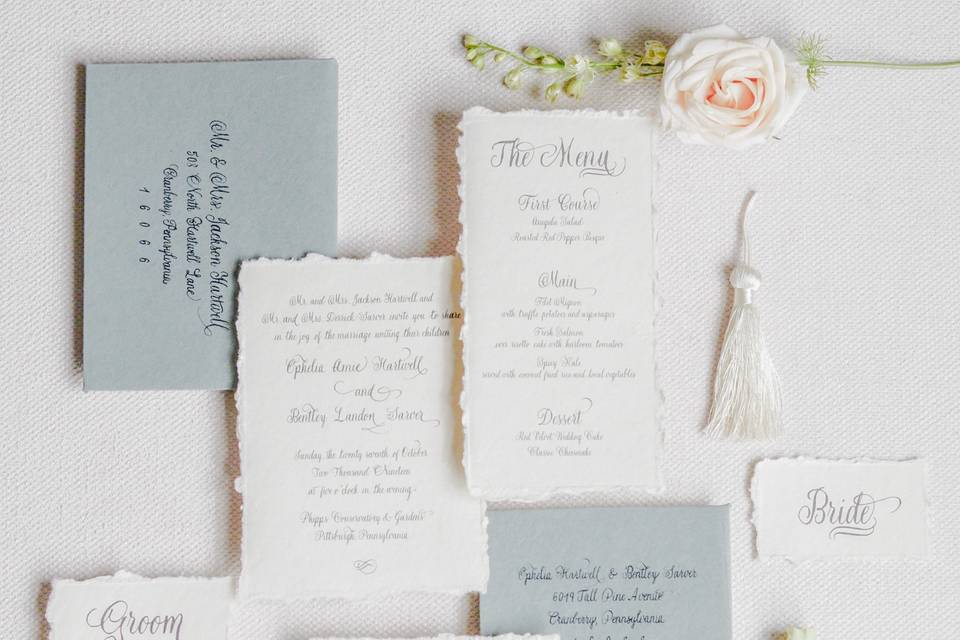 Mr. & Mrs. Jackson Hartwell
503 North Hartwell Lane
Cranberry, Pennsylvania
16066
Mr. and Mrs. Jackson Hartwell and
Mr. and Mrs. Derrick Sarver invite you to share
in the joy of the marriage uniting their children
Ophelia Amie Hartwell
and
Bentley Landon Sarver
Sunday, the twenty seventh of October
Two Thousand Nineteen
at five o'clock in the evening
Phipps Conservatory & Gardens
Pittsburgh, Pennsylvania
The Menu
First Course
Arugula Salad
Roasted Red Pepper Bisque
Main
Filet Mignon
with truffle potatoes and asparagus
Fresh Salmon
over risotto cake with heirloom tomatoes
Spicy Kale
served with almond fried rice and local vegetables
Dessert
Red Velvet Wedding Cake
Classic Cheesecake
Bride
Groom
Ophelia Hartwell & Bentley Sarver
6019 Tall Pine Avenue
Cranberry, Pennsylvania